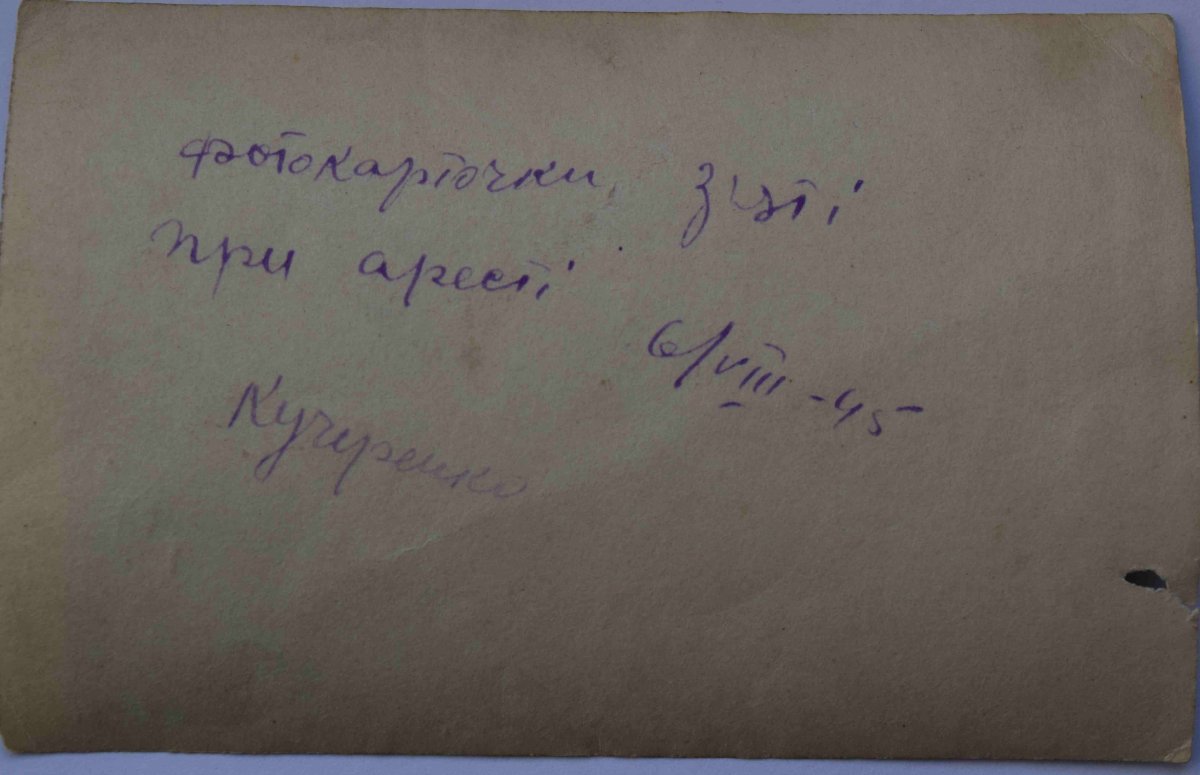 фотокарточки, зняті
при аресті
6/VIII -45
Кучеренко